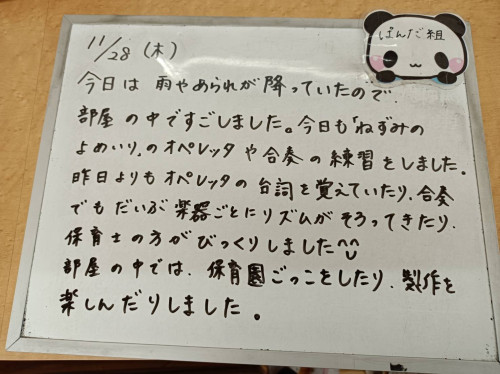 ぱんだ組
11/28(木)
今日は 雨やあられが 降っていたので、
部屋の中ですごしました。今日も「ねずみの
よめいり」のオペレッタや合奏の練習をしました。
昨日よりもオペレッタの台詞を覚えていたり、合奏
でもだいぶ楽器ごとにリズムがそろってきたり、
保育士の方がびっくりしました^^
部屋の中では、保育園ごっこをしたり、製作を
楽しんだりしました。